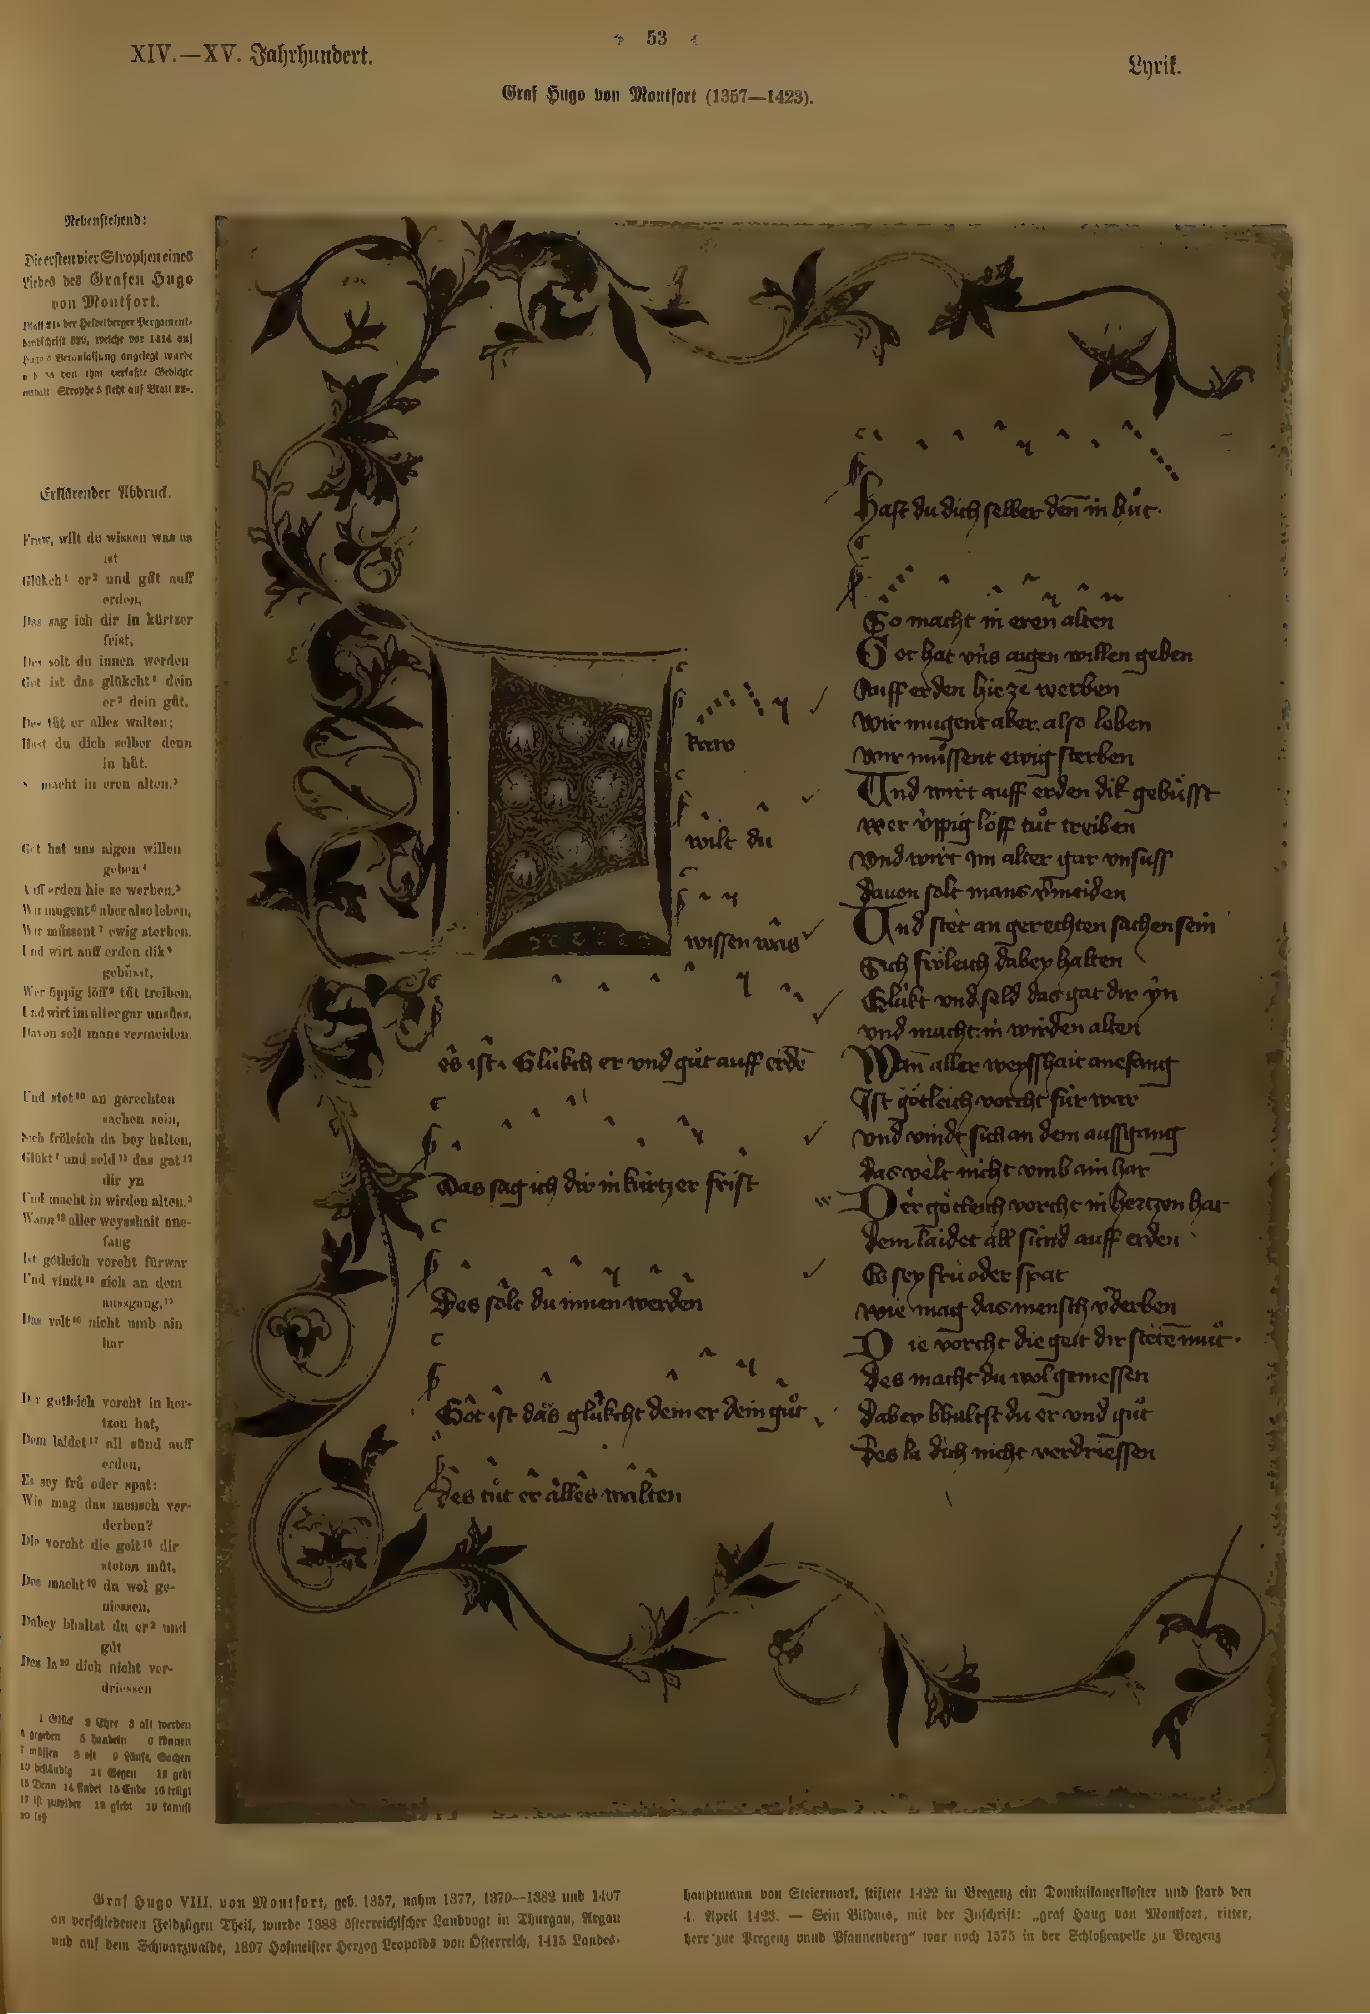 XIV.—XV. Jahrhundert.
53
Lyrik.
Graf Hugo von Montfort (1357—1423).
Nebenstehend:
Die ersten vier Strophen eines
Liedes des Grafen Hugo
von Montfort.
Blatt der Heidelberger Pergament-
handschrift welche vor 1414 auf
Hugos Veranlassung angelegt wurde
von ihm verfaßte Gedichte
enthält Strophe 5 steht auf Blatt
Erklärender Abdruck.
Fraw, wilt du wissen was es
ist
Glükch¹ er² und gůt auff
erden,
Das sag ich dir in kürtzer
frist,
Des solt du innen werden
Got ist das glükcht¹ dein
er² dein gůt,
Des tůt er alles walten;
Hast du dich selber denn
in hůt.
macht in eren alten.³
Got hat uns aigen willen
geben⁴
Auff erden hie ze werben.⁵
Wir mugent⁶ aber also leben,
Wir müssent⁷ ewig sterben.
Und wirt auff erden dik⁸
gebüsst,
Wer üppig löff⁹ tůt treiben,
Und wirt im alter gar unsüss,
Davon solt mans vermeiden.
Und stet¹⁰ an gerechten
sachen sein,
Sich fröleich da bey halten,
Glükt¹ und seld¹¹ das gat¹²
dir yn
Und macht in wirden alten.³
Wann¹³ aller weysshait ane-
fang
Ist götleich vorcht fürwar
Und vindt¹⁴ sich an dem
aussgang,¹⁵
Das velt¹⁶ nicht umb ain
har
Der gotleich vorcht in her-
tzen hat,
Dem laidet¹⁷ all sünd auff
erden,
Es sey frů oder spat:
Wie mag das mensch ver-
derben?
Die vorcht die geit¹⁸ dir
steten můt,
Des macht¹⁹ du wol ge-
niessen,
Dabey bhaltst du er² und
gůt
Des la²⁰ dich nicht ver-
driessen
1 Glück 2 Ehre 3 alt werden
4 gegeben 5 handeln 6 können
7 müssen 8 oft 9 Läufe, Sachen
10 beständig 11 Segen 12 geht
13 Denn 14 findet 15 Ende 16 trügt
17 ist zuwider 18 giebt 19 kannst
20 laß
fraw
wilt du
wissen was
es ist. Glükch er vnd gůt auff erdē
Das sag ich dir in kürtzer frist
Des solt du innen werden
Got ist das glükcht dein er dein gůt
des tůt er alles walten
hast du dich selber deñ in hůt.
So macht in eren alten
Got hat vns aigen willen geben
Auff erden hie ze werben
wir mugent aber also leben
wir müssent ewig sterben
Und wirt auff erden dik gebüsst
wer üppig löff tůt treiben
vnd wirt im alter gar vnsüss
dauon solt mans vmeiden
Und stet an gerechten sachen sein
Sich fröleich dabey halten
Glükt vnd seld das gat dir yn
vnd macht in wirden alten
Wañ aller weysshait anefang
Ist götleich vorcht für war
vnd vindt sich an dem aussgang
das velt nicht vmb ain har
Der götleich vorcht in hertzen hat
dem laidet all sünd auff erden
Es sey frü oder spat
wie mag das mensch vderben
Die vorcht die geit dir stetē můt.
des macht du wol geniessen
dabey bhaltst du er vnd gůt
Des la dich nicht verdriessen
Graf Hugo VIII. von Montfort, geb. 1357, nahm 1377, 1379—1382 und 1407
an verschiedenen Feldzügen Theil, wurde 1388 österreichischer Landvogt in Thurgau, Argau
und auf dem Schwarzwalde, 1397 Hofmeister Herzog Leopolds von Österreich, 1415 Landes-
hauptmann von Steiermark, stiftete 1422 in Bregenz ein Dominikanerkloster und starb den
4. April 1423. — Sein Bildnis, mit der Inschrift: „graf Haug von Montfort, ritter,
herr zue Pregenz vnnd Pfannenberg“ war noch 1575 in der Schloßcapelle zu Bregenz